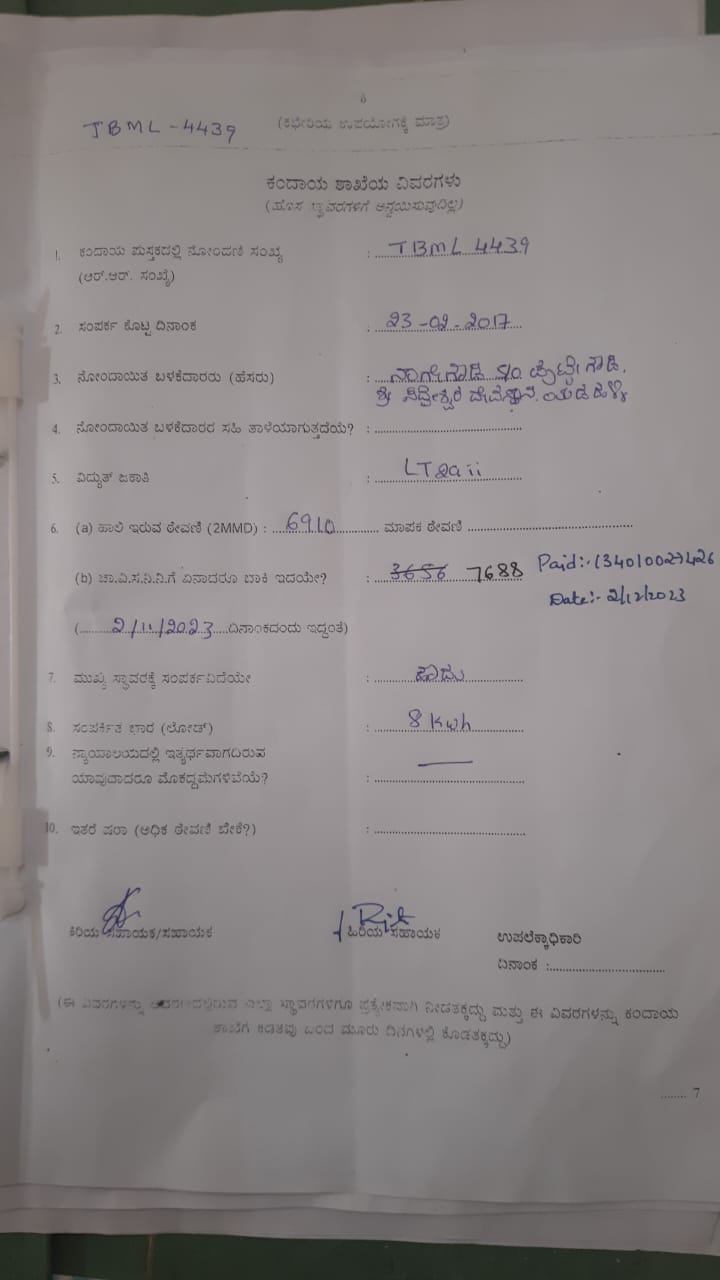 6
TBML-4439
(ಕಛೇರಿಯ ಉಪಯೋಗಕ್ಕೆ ಮಾತ್ರ)
ಕಂದಾಯ ಶಾಖೆಯ ವಿವರಗಳು
(ಹೊಸ ಸ್ಥಾವರಗಳಿಗೆ ಅನ್ವಯಿಸುವುದಿಲ್ಲ)
1. ಕಂದಾಯ ಪುಸ್ತಕದಲ್ಲಿ ನೋಂದಣಿ ಸಂಖ್ಯೆ : TBML 4439
(ಆರ್.ಆರ್. ಸಂಖ್ಯೆ)
2. ಸಂಪರ್ಕ ಕೊಟ್ಟ ದಿನಾಂಕ : 23-02-2017
3. ನೋಂದಾಯಿತ ಬಳಕೆದಾರರು (ಹೆಸರು) : ನಾಗೇಗೌಡ S/o ಪುಟ್ಟೇಗೌಡ,
ಶ್ರೀ ಸಿದ್ದೇಶ್ವರ ದೇವಸ್ಥಾನ.
4. ನೋಂದಾಯಿತ ಬಳಕೆದಾರರ ಸಹಿ ತಾಳೆಯಾಗುತ್ತದೆಯೇ? :
5. ವಿದ್ಯುತ್ ಜಕಾತಿ : LT2aii
6. (a) ಹಾಲಿ ಇರುವ ಠೇವಣಿ (2MMD) : 6910 ಮಾಪಕ ಠೇವಣಿ
(b) ಚಾ.ವಿ.ಸ.ನಿ.ನಿ.ಗೆ ಏನಾದರೂ ಬಾಕಿ ಇದೆಯೇ? : 3656 7688 Paid:-134010027426
Date:- 2/12/2023
(2/11/2023 ದಿನಾಂಕದಂದು ಇದ್ದಂತೆ)
7. ಮುಖ್ಯ ಸ್ಥಾವರಕ್ಕೆ ಸಂಪರ್ಕವಿದೆಯೇ : ಹೌದು
8. ಸಂಪರ್ಕಿತ ಭಾರ (ಲೋಡ್) : 8 Kwh
9. ನ್ಯಾಯಾಲಯದಲ್ಲಿ ಇತ್ಯರ್ಥವಾಗದಿರುವ
ಯಾವುದಾದರೂ ಮೊಕದ್ದಮೆಗಳಿವೆಯೆ? :
10. ಇತರೆ ಷರಾ (ಅಧಿಕ ಠೇವಣಿ ಬೇಕೆ?) :
ಕಿರಿಯ ಸಹಾಯಕ/ಸಹಾಯಕ ಹಿರಿಯ ಸಹಾಯಕ ಉಪಲೆಕ್ಕಾಧಿಕಾರಿ
ದಿನಾಂಕ :
(ಈ ವಿವರಗಳನ್ನು ಆವರಣದಲ್ಲಿರುವ ಎಲ್ಲಾ ಸ್ಥಾವರಗಳಿಗೂ ಪ್ರತ್ಯೇಕವಾಗಿ ನೀಡತಕ್ಕದ್ದು ಮತ್ತು ಈ ವಿವರಗಳನ್ನು ಕಂದಾಯ
ಶಾಖೆಗೆ ಕಡತವು ಬಂದ ಮೂರು ದಿನಗಳಲ್ಲಿ ಕೊಡತಕ್ಕದ್ದು)
........ 7